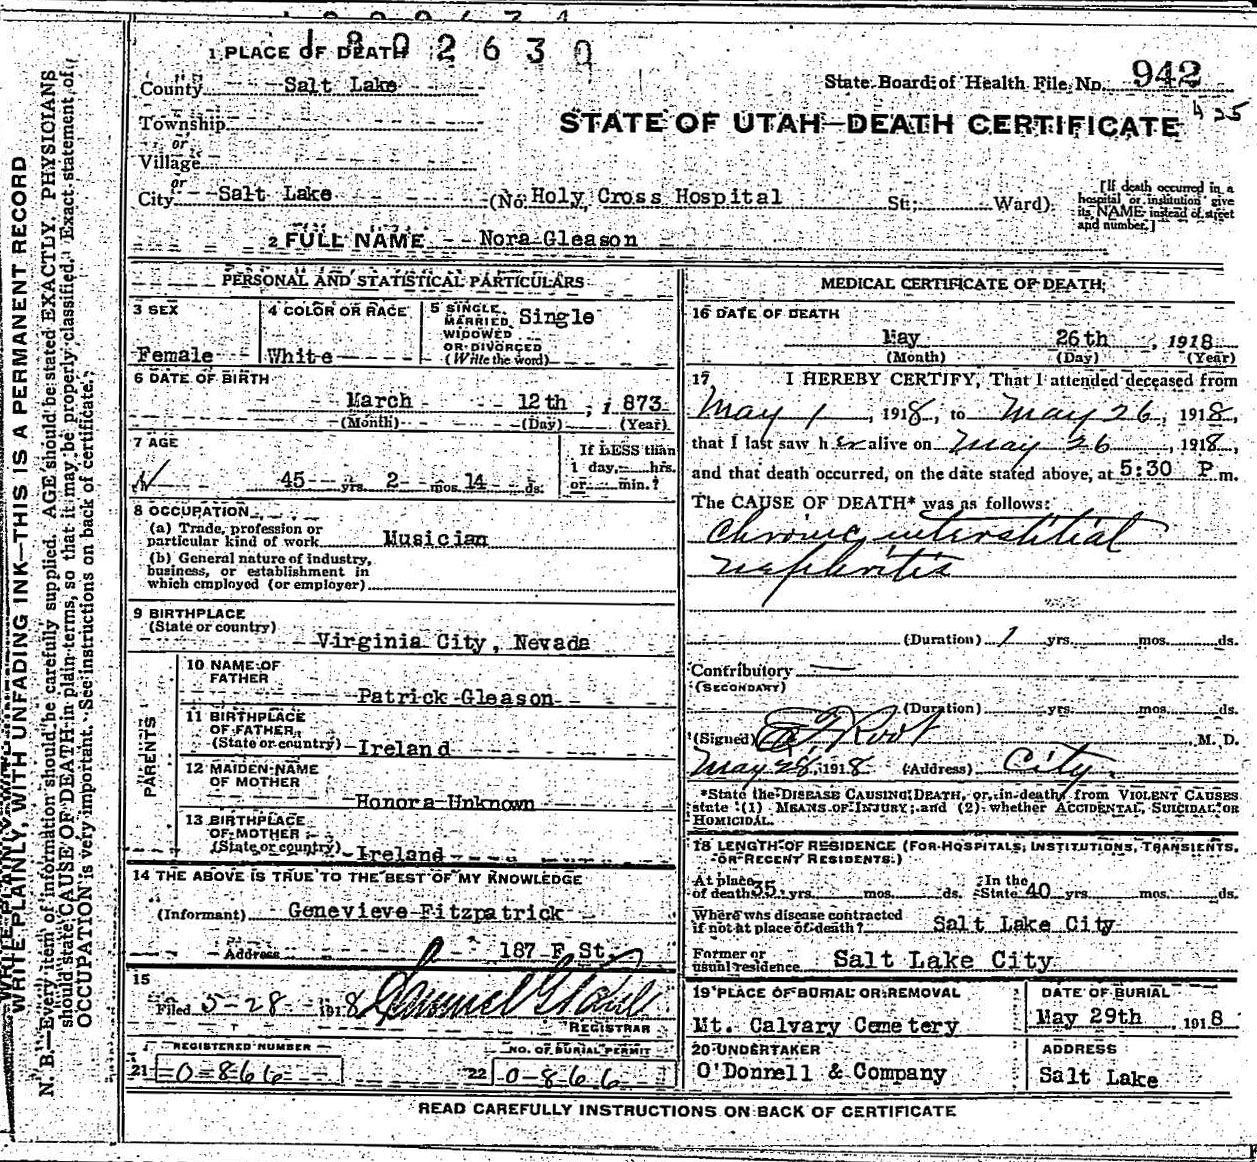 1802630
1 PLACE OF DEATH
County Salt Lake
State Board of Health File No. 942
Township
or
Village
or
STATE OF UTAH—DEATH CERTIFICATE
City Salt Lake (No. Holy Cross Hospital St.; Ward)
[If death occurred in a hospital or institution give its NAME instead of street and number.]
2 FULL NAME Nora Gleason
PERSONAL AND STATISTICAL PARTICULARS
3 SEX
Female
4 COLOR OR RACE
White
5 SINGLE, MARRIED, WIDOWED OR DIVORCED (Write the word) Single
6 DATE OF BIRTH
March 12th, 1873
(Month) (Day) (Year)
7 AGE
45 yrs. 2 mos. 14 ds.
If LESS than
1 day, hrs.
or min.?
8 OCCUPATION
(a) Trade, profession or
particular kind of work Musician
(b) General nature of industry,
business, or establishment in
which employed (or employer)
9 BIRTHPLACE
(State or country)
Virginia City, Nevada
PARENTS
10 NAME OF
FATHER
Patrick Gleason
11 BIRTHPLACE
OF FATHER
(State or country) Ireland
12 MAIDEN NAME
OF MOTHER
Honora Unknown
13 BIRTHPLACE
OF MOTHER
(State or country) Ireland
14 THE ABOVE IS TRUE TO THE BEST OF MY KNOWLEDGE
(Informant) Genevieve Fitzpatrick
Address 187 F St.
15
Filed 5-28 1918
REGISTRAR
REGISTERED NUMBER
21 0-866
NO. OF BURIAL PERMIT
22 0-866
MEDICAL CERTIFICATE OF DEATH
16 DATE OF DEATH
May 26th, 1918
(Month) (Day) (Year)
17 I HEREBY CERTIFY, That I attended deceased from
May 1, 1918, to May 26, 1918,
that I last saw her alive on May 26, 1918,
and that death occurred, on the date stated above, at 5:30 P m.
The CAUSE OF DEATH* was as follows:
Chronic interstitial
nephritis
(Duration) 1 yrs. mos. ds.
Contributory
(SECONDARY)
(Duration) yrs. mos. ds.
(Signed) Root M. D.
May 28, 1918 (Address) City.
*State the DISEASE CAUSING DEATH, or, in deaths from VIOLENT CAUSES
state (1) MEANS OF INJURY; and (2) whether ACCIDENTAL, SUICIDAL OR
HOMICIDAL.
18 LENGTH OF RESIDENCE (FOR HOSPITALS, INSTITUTIONS, TRANSIENTS,
OR RECENT RESIDENTS.)
At place
of death 35 yrs. mos. ds. In the
State 40 yrs. mos. ds.
Where was disease contracted
if not at place of death? Salt Lake City
Former or
usual residence Salt Lake City
19 PLACE OF BURIAL OR REMOVAL
Mt. Calvary Cemetery
DATE OF BURIAL
May 29th, 1918
20 UNDERTAKER
O'Donnell & Company
ADDRESS
Salt Lake
READ CAREFULLY INSTRUCTIONS ON BACK OF CERTIFICATE
WRITE PLAINLY, WITH UNFADING INK—THIS IS A PERMANENT RECORD
N. B.—Every item of information should be carefully supplied. AGE should be stated EXACTLY. PHYSICIANS
should state CAUSE OF DEATH in plain terms, so that it may be properly classified. Exact statement of
OCCUPATION is very important. See instructions on back of certificate.